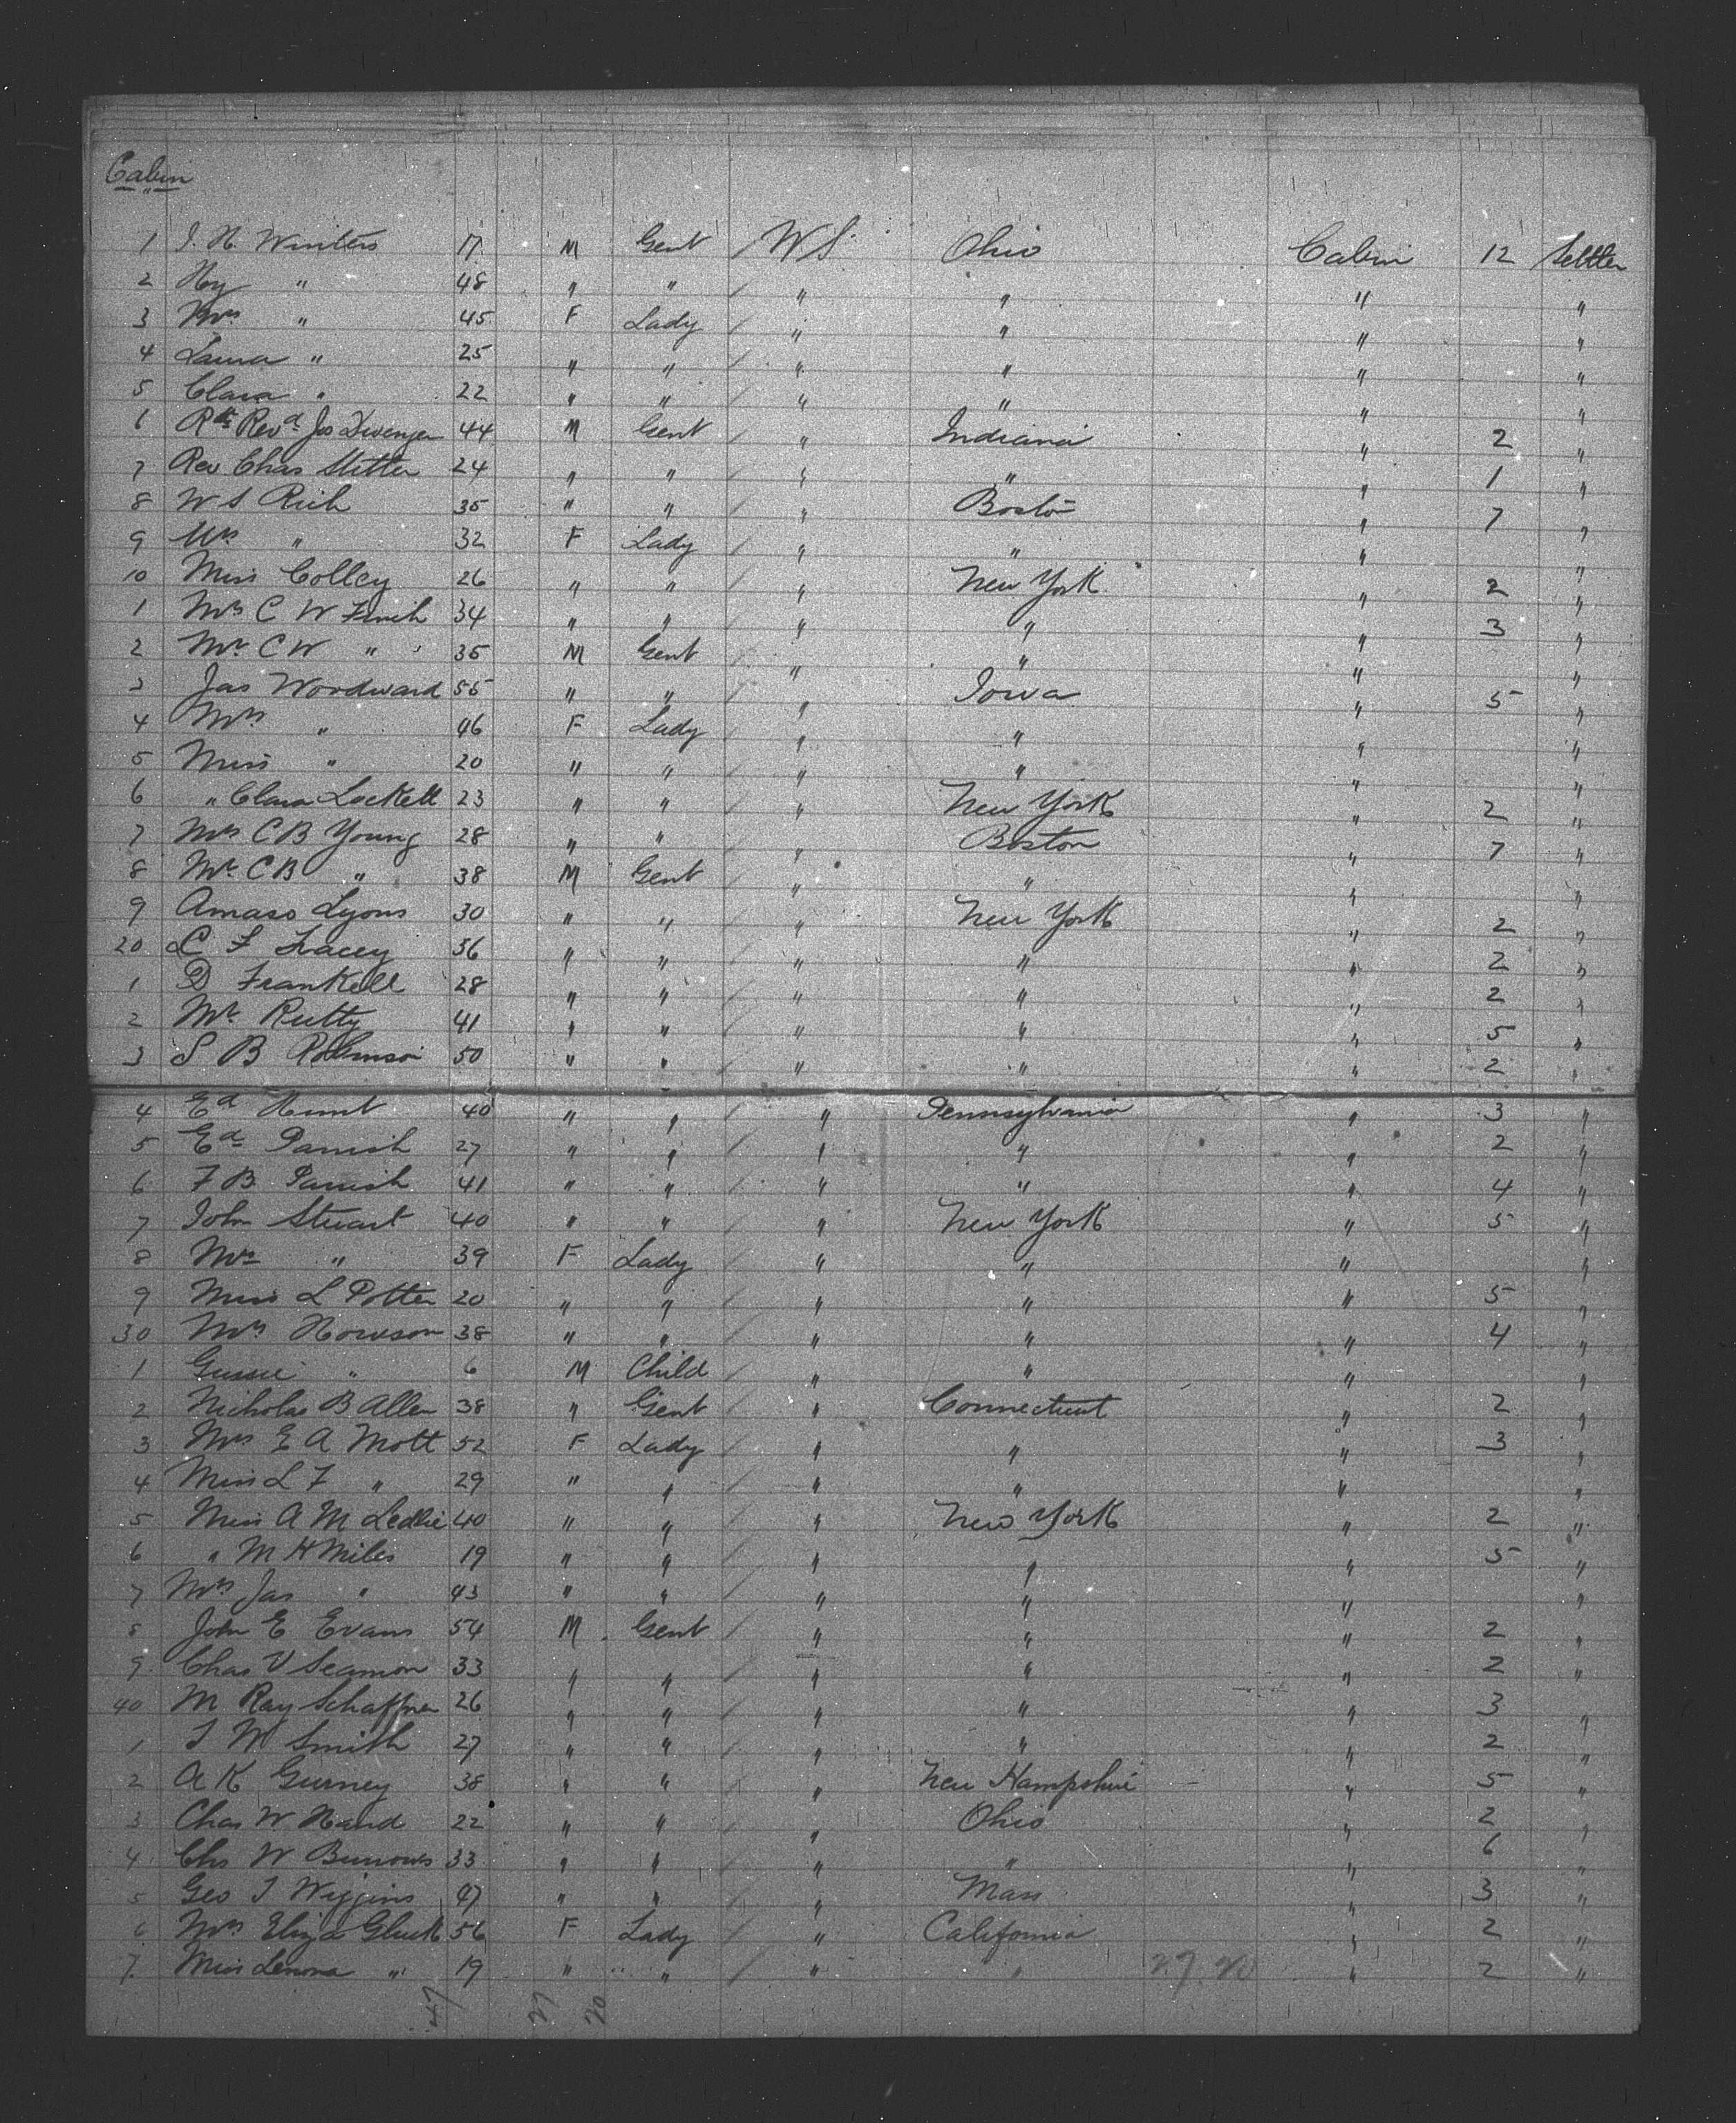 Cabin
1 J. H. Winters 17 M Gent / W S Ohio Cabin 12 Settler
2 Hy " 48 " " / " " " "
3 Mrs " 45 F Lady / " " " "
4 Laura " 25 " " / " " " "
5 Clara " 22 " " / " " " "
6 Rt Revd Jos Dwenger 44 M Gent / " Indiana " 2 "
7 Rev Chas 24 " " / " " " 1 "
8 W S Rich 35 " " / " Boston " 7 "
9 Mrs " 32 F Lady / " " " "
10 Miss Colley 26 " " / " New York " 2 "
1 Mrs C W Finch 34 " " / " " " 3 "
2 Mr C W " 35 M Gent / " " " "
3 Jas Woodward 55 " " / " Iowa " 5 "
4 Mrs " 46 F Lady / " " " "
5 Miss " 20 " " / " " " "
6 " Clara Lockett 23 " " / " New York " 2 "
7 Mrs C B Young 28 " " / " Boston " 7 "
8 Mr C B " 38 M Gent / " " " "
9 Amaso Lyons 30 " " / " New York " 2 "
20 C F Tracey 36 " " / " " " 2 "
1 D Frankell 28 " " / " " " 2 "
2 Mr Rutty 41 " " / " " " 5 "
3 S B Robinson 50 " " / " " " 2 "
4 Ed Hunt 40 " " / " Pennsylvania " 3 "
5 Ed Parrish 27 " " / " " " 2 "
6 F B Parrish 41 " " / " " " 4 "
7 John Stuart 40 " " / " New York " 5 "
8 Mrs " 39 F Lady / " " " "
9 Miss L Potter 20 " " / " " " 5 "
30 Mrs Howson 38 " " / " " " 4 "
1 Gussie " 6 M Child / " " " "
2 Nicholas B Allen 38 " Gent / " Connecticut " 2 "
3 Mrs E A Mott 52 F Lady / " " " 3 "
4 Miss L F " 29 " " / " " " "
5 Miss A M Ledlie 40 " " / " New York " 2 "
6 " M H Miles 19 " " / " " " 5 "
7 Mrs Jas " 43 " " / " " " "
8 John E Evans 54 M Gent / " " " 2 "
9 Chas V Seamon 33 " " / " " " 2 "
40 M Ray Schaffner 26 " " / " " " 3 "
1 T W Smith 27 " " / " " " 2 "
2 A K Gurney 38 " " / " New Hampshire " 5 "
3 Chas W Hand 22 " " / " Ohio " 2 "
4 Chs W Burrows 33 " " / " " " 6 "
5 Geo T Wiggins 47 " " / " Mass " 3 "
6 Mrs Eliza Gluck 56 F Lady / " California " 2 "
7 Miss Lenora " 19 " " / " " 27. 20 " 2 "
47 27 20